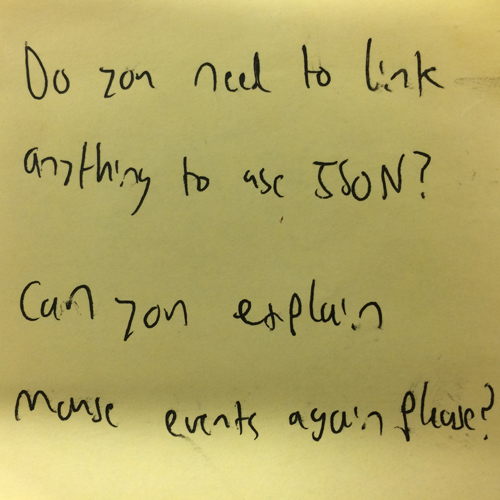 Do you need to link
anything to use JSON?
Can you explain
mouse events again please?